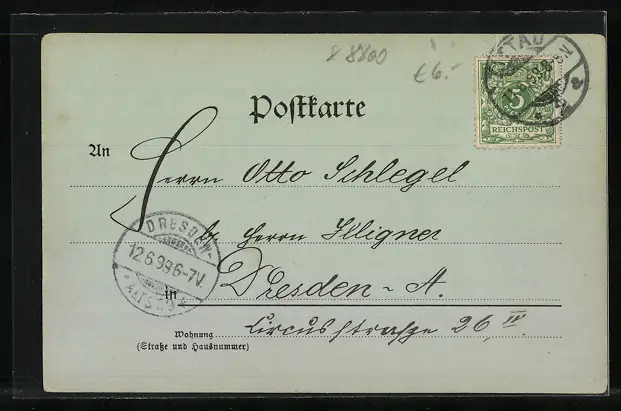 8800
€6.-
TTAU
5
REICHSPOST
Postkarte
An
Herrn Otto Schlegel
b/ Herrn Illigner
in Dresden - A.
Circusstraße 26, IV.
Wohnung
(Straße und Hausnummer)
DRESDEN
12.6.99.6-7V.
ALTST.